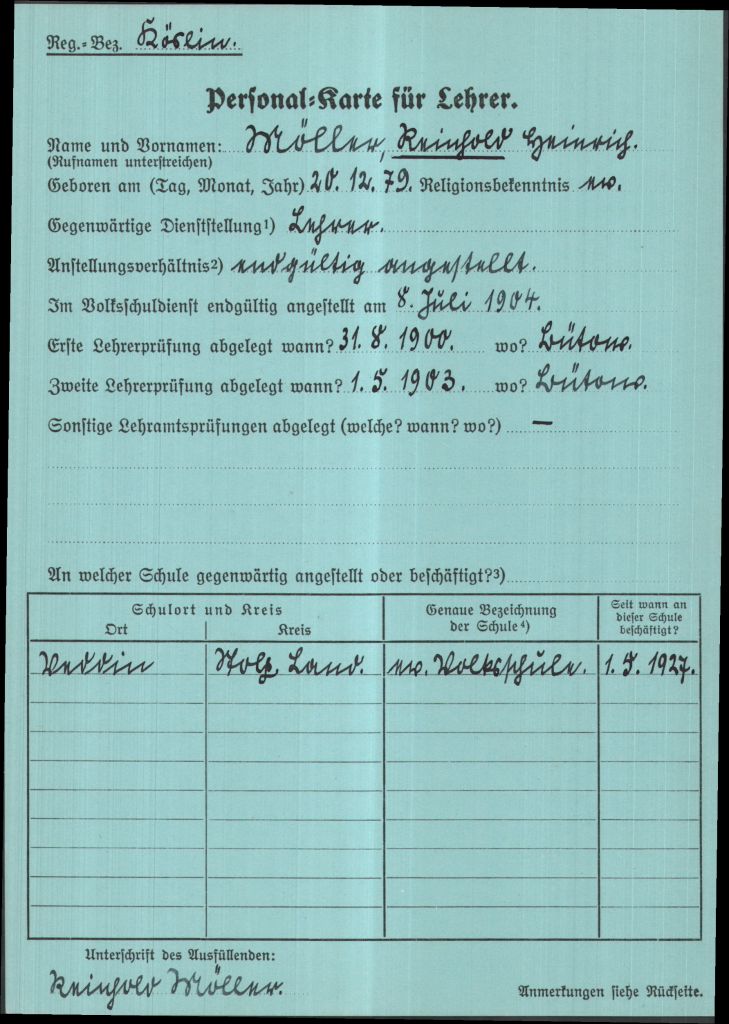 Reg.-Bez. Köslin.
Personal-Karte für Lehrer.
Name und Vornamen: Möller, Reinhold Heinrich.
(Rufnamen unterstreichen)
Geboren am (Tag, Monat, Jahr) 20. 12. 79. Religionsbekenntnis ev.
Gegenwärtige Dienststellung¹) Lehrer.
Anstellungsverhältnis²) endgültig angestellt.
Im Volksschuldienst endgültig angestellt am 8. Juli 1904.
Erste Lehrerprüfung abgelegt wann? 31. 8. 1900. wo? Bütow.
Zweite Lehrerprüfung abgelegt wann? 1. 5. 1903. wo? Bütow.
Sonstige Lehramtsprüfungen abgelegt (welche? wann? wo?) —
An welcher Schule gegenwärtig angestellt oder beschäftigt?³)
Schulort und Kreis
Ort Kreis
Genaue Bezeichnung
der Schule⁴)
Seit wann an
dieser Schule
beschäftigt?
Veddin Stolp, Land. ev. Volksschule. 1. 5. 1927.
Unterschrift des Ausfüllenden:
Reinhold Möller.
Anmerkungen siehe Rückseite.